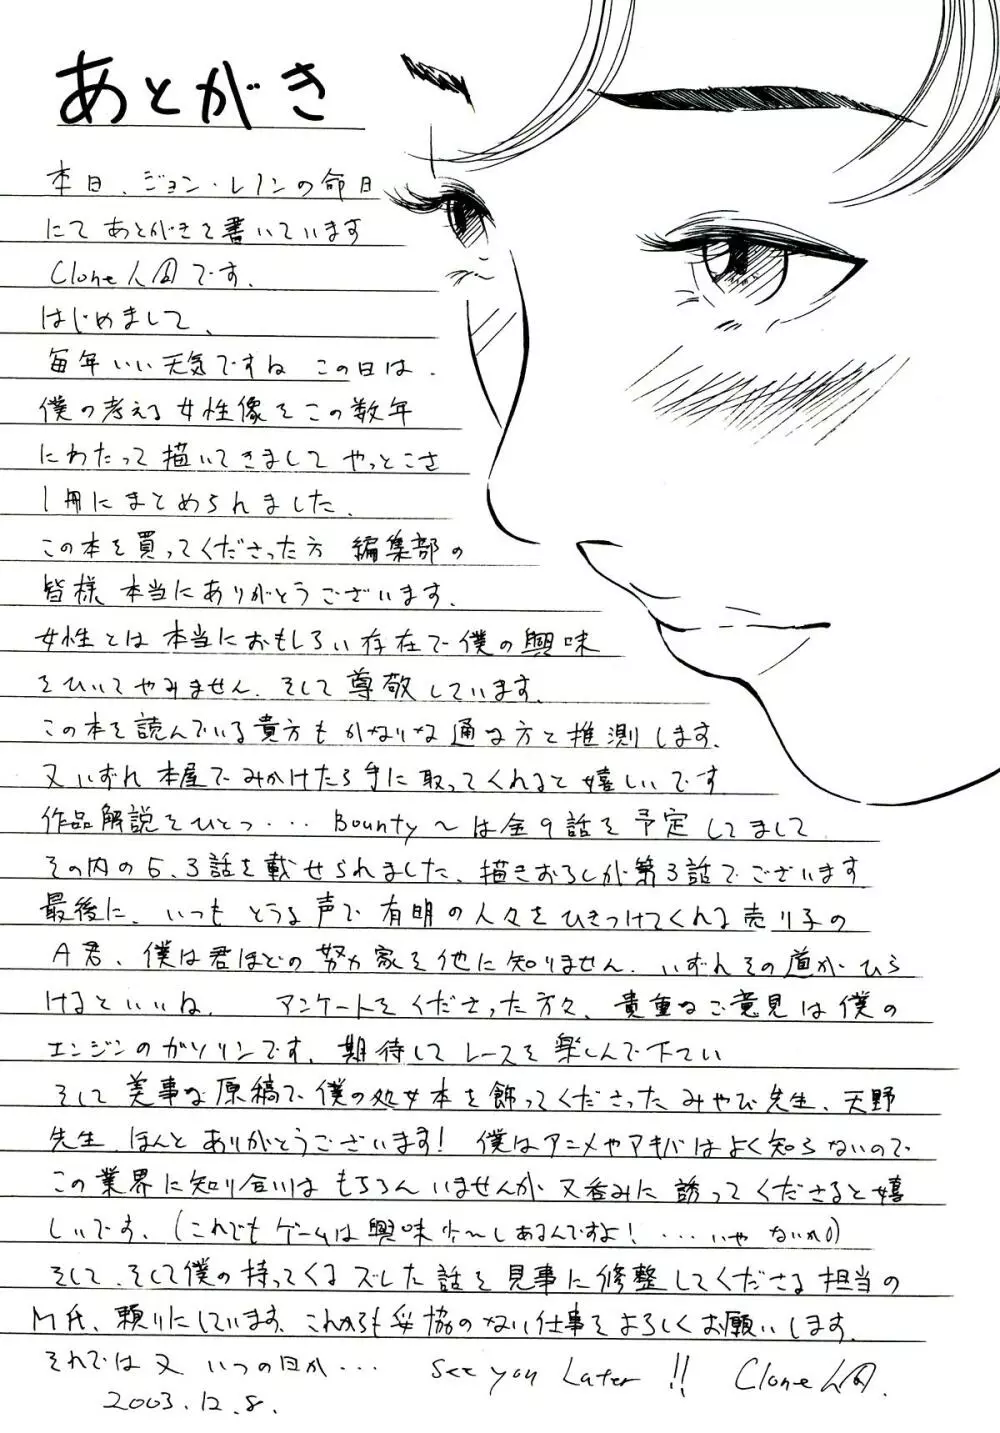 あとがき
本日、ジョン・レノンの命日
にてあとがきを書いています
Clone人間です.
はじめまして、
毎年いい天気ですね この日は.
僕の考える女性像をこの数年
にわたって描いてきまして やっとこさ
1冊にまとめられました.
この本を買ってくださった方 編集部の
皆様 本当にありがとうございます.
女性とは本当におもしろい存在で僕の興味
をひいてやみません. そして尊敬しています.
この本を読んでいる貴方もかなりな通な方と推測します.
又いずれ本屋でみかけたら手に取ってくれると嬉しいです
作品解説をひとつ... Bounty〜は全9話を予定してまして
その内の5.3話を載せられました、描きおろしが第3話でございます
最後に、いつも どうる声で有明の人々をひきつけてくれる売り子の
A君、僕は君ほどの努力家を他に知りません. いずれその道がひら
けるといいね. アンケートをくださった方々、貴重なご意見は僕の
エンジンのガソリンです、期待してレースを楽しんで下さい
そして美事な原稿で僕の処女本を飾ってくださったみやび先生、天野
先生 ほんとありがとうございます! 僕はアニメやアキバはよく知らないので
この業界に知り合いはもちろんいませんが又呑みに誘ってくださると嬉
しいです、(これでもゲームは興味少〜しあるんですよ! ...いや ないか)
そして、そして僕の持ってくるズレた話を見事に修整してくださる担当の
M氏、頼りにしています、これからも妥協のない仕事をよろしくお願いします.
それでは又 いつの日か... See you Later!! Clone人間.
2003.12.8.